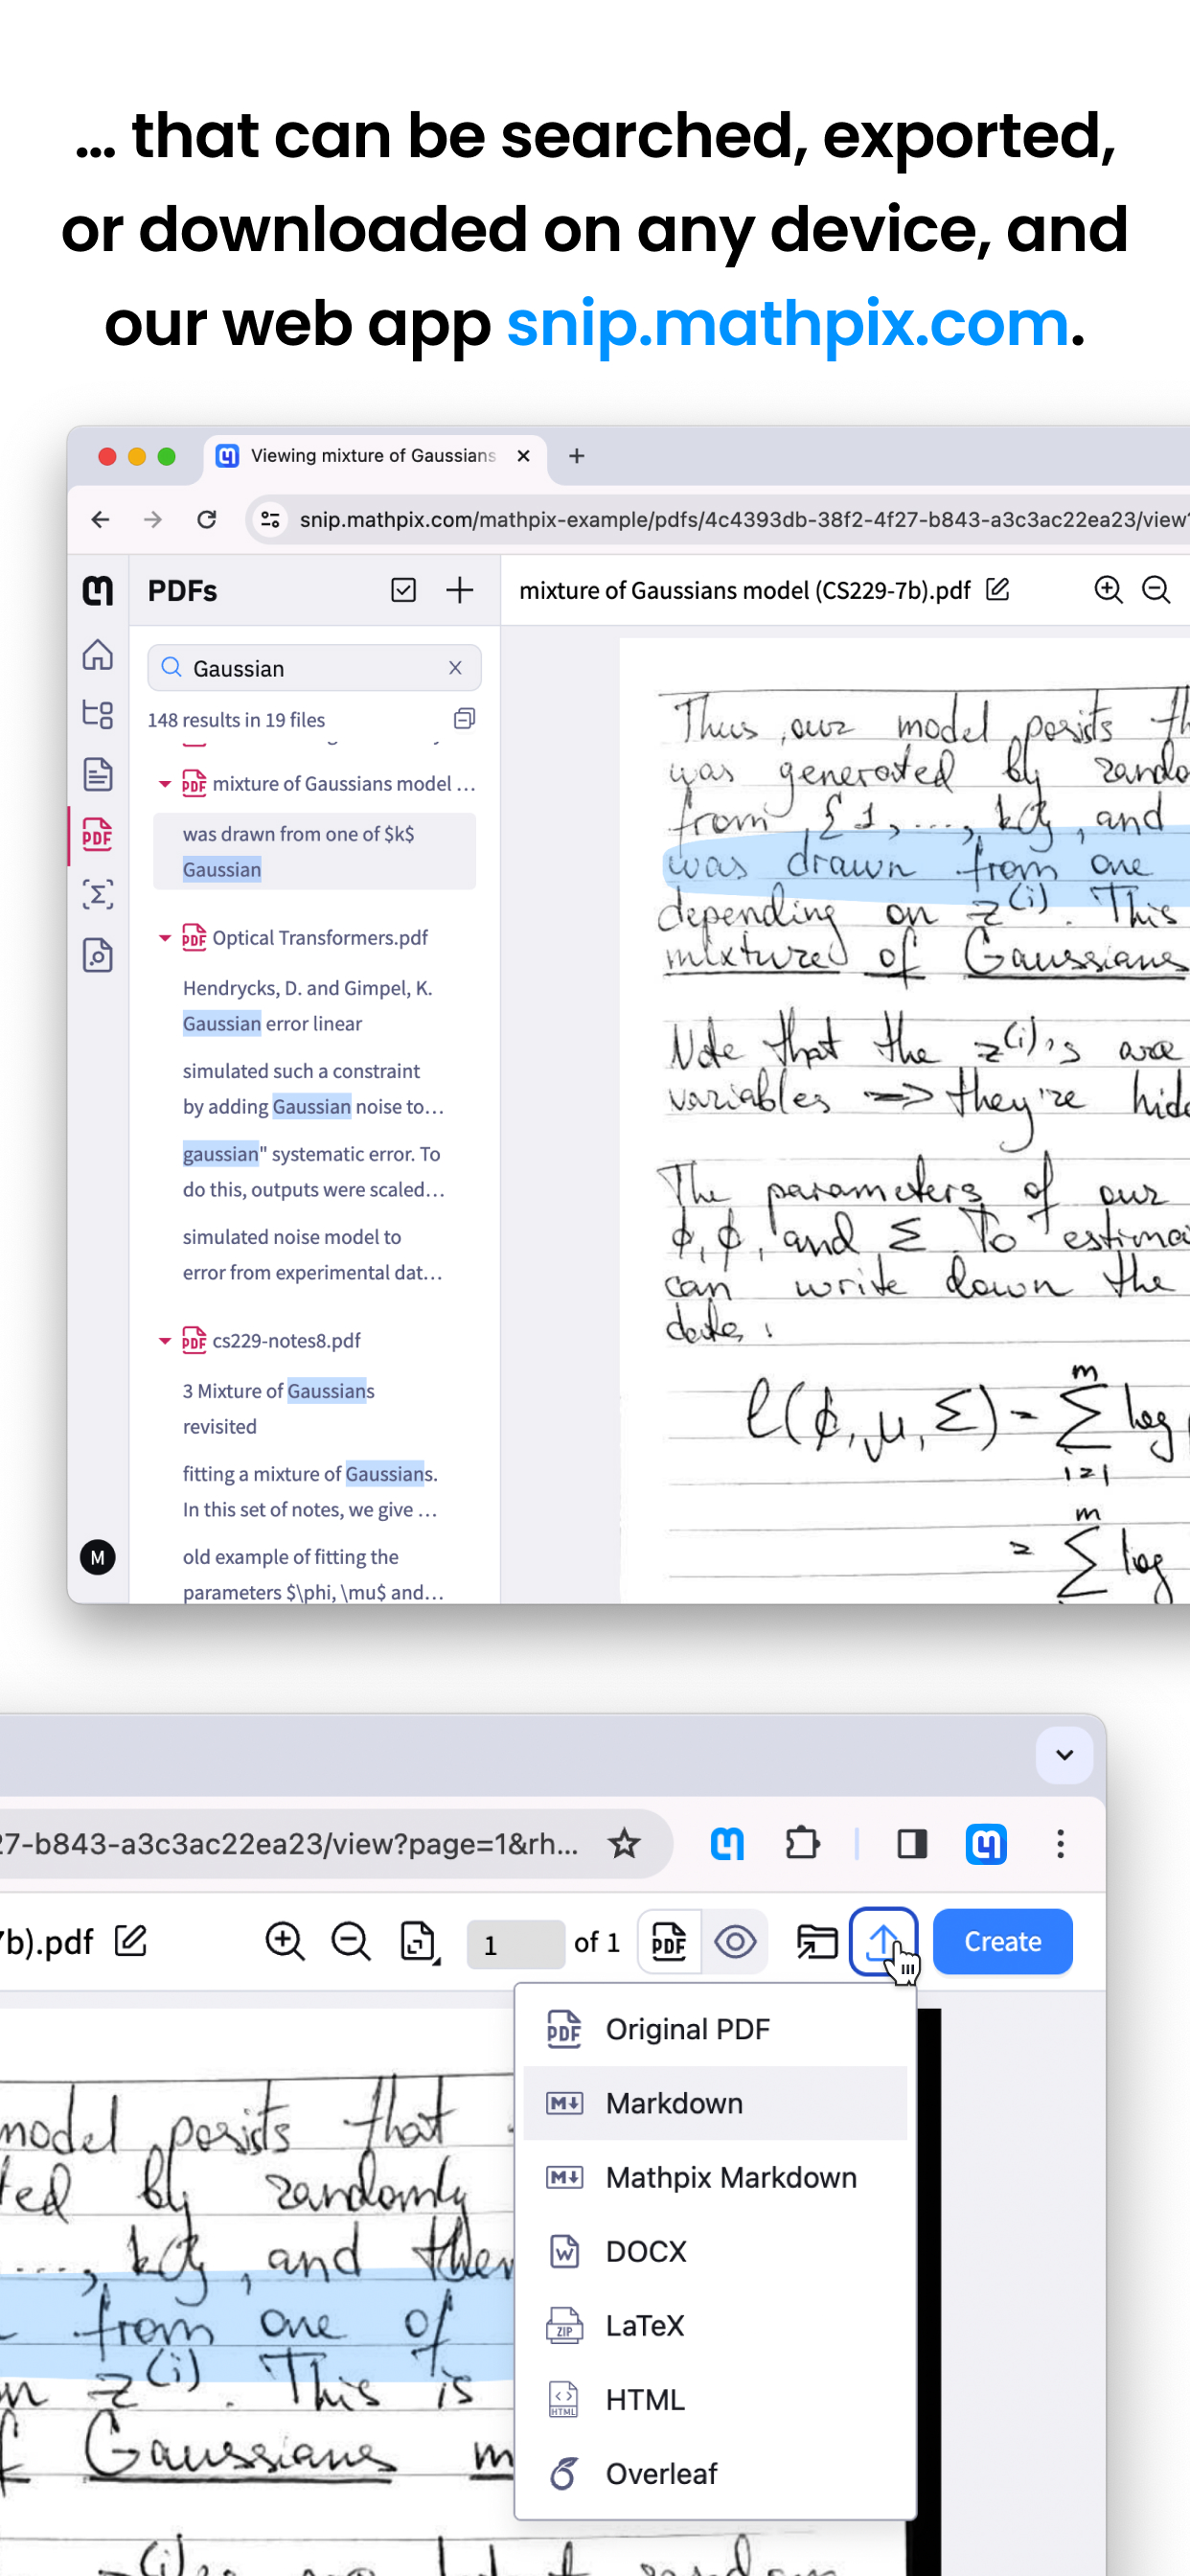 ... that can be searched, exported,
or downloaded on any device, and
our web app snip.mathpix.com.
Viewing mixture of Gaussians
snip.mathpix.com/mathpix-example/pdfs/4c4393db-38f2-4f27-b843-a3c3ac22ea23/view?
PDFs
mixture of Gaussians model (CS229-7b).pdf
Gaussian
148 results in 19 files
PDF mixture of Gaussians model ...
was drawn from one of $k$
Gaussian
PDF Optical Transformers.pdf
Hendrycks, D. and Gimpel, K.
Gaussian error linear
simulated such a constraint
by adding Gaussian noise to...
gaussian" systematic error. To
do this, outputs were scaled...
simulated noise model to
error from experimental dat...
PDF cs229-notes8.pdf
3 Mixture of Gaussians
revisited
fitting a mixture of Gaussians.
In this set of notes, we give ...
old example of fitting the
parameters $\phi, \mu$ and...
PDF
M
Thus, our model posits th
was generated by rando
from {1, ..., k}, and
was drawn from one
depending on z^(i). This
mixture of Gaussians
Note that the z^(i)'s are
variables => they're hid
The parameters of our
ϕ, ϕ, and Σ To estima
can write down the
data:
ℓ(ϕ, μ, Σ) = m Σ i=1 log
= m Σ log
27-b843-a3c3ac22ea23/view?page=1&rh...
7b).pdf
1 of 1
PDF
Create
PDF Original PDF
M Markdown
M Mathpix Markdown
W DOCX
ZIP LaTeX
HTML HTML
Overleaf
model posits that
ted by randomly
..., k}, and then
from one of
n z^(i). This is
f Gaussians m